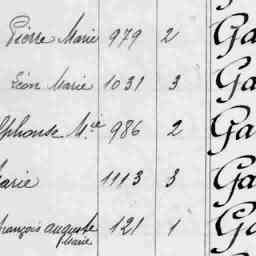 Pierre Marie 979 2 Ga
Léon Marie 1031 3 Ga
lphonse M.ie 986 2 Ga
Marie 1113 3 Ga
rançois auguste Marie 121 1 Ga